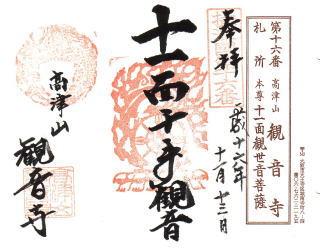 第十六番
札所
高津山
観音寺
本尊十一面観世音菩薩
奉拝
平成十六年
十一月十三日
十一面千手観音
高津山
観音寺